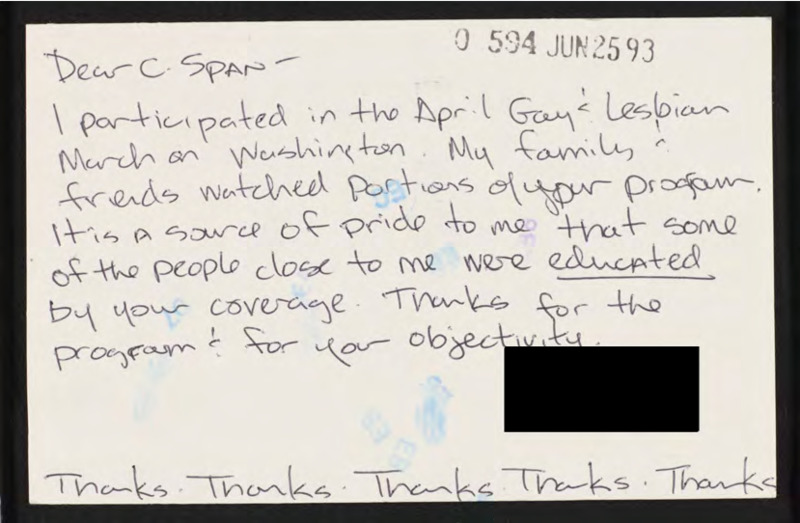 0 594 JUN 25 93
Dear C. SPAN -
I participated in the April Gay & Lesbian
March on Washington. My family &
friends watched portions of your program.
It is a source of pride to me that some
of the people close to me were educated
by your coverage. Thanks for the
program & for your objectivity.
Thanks. Thanks. Thanks. Thanks. Thanks